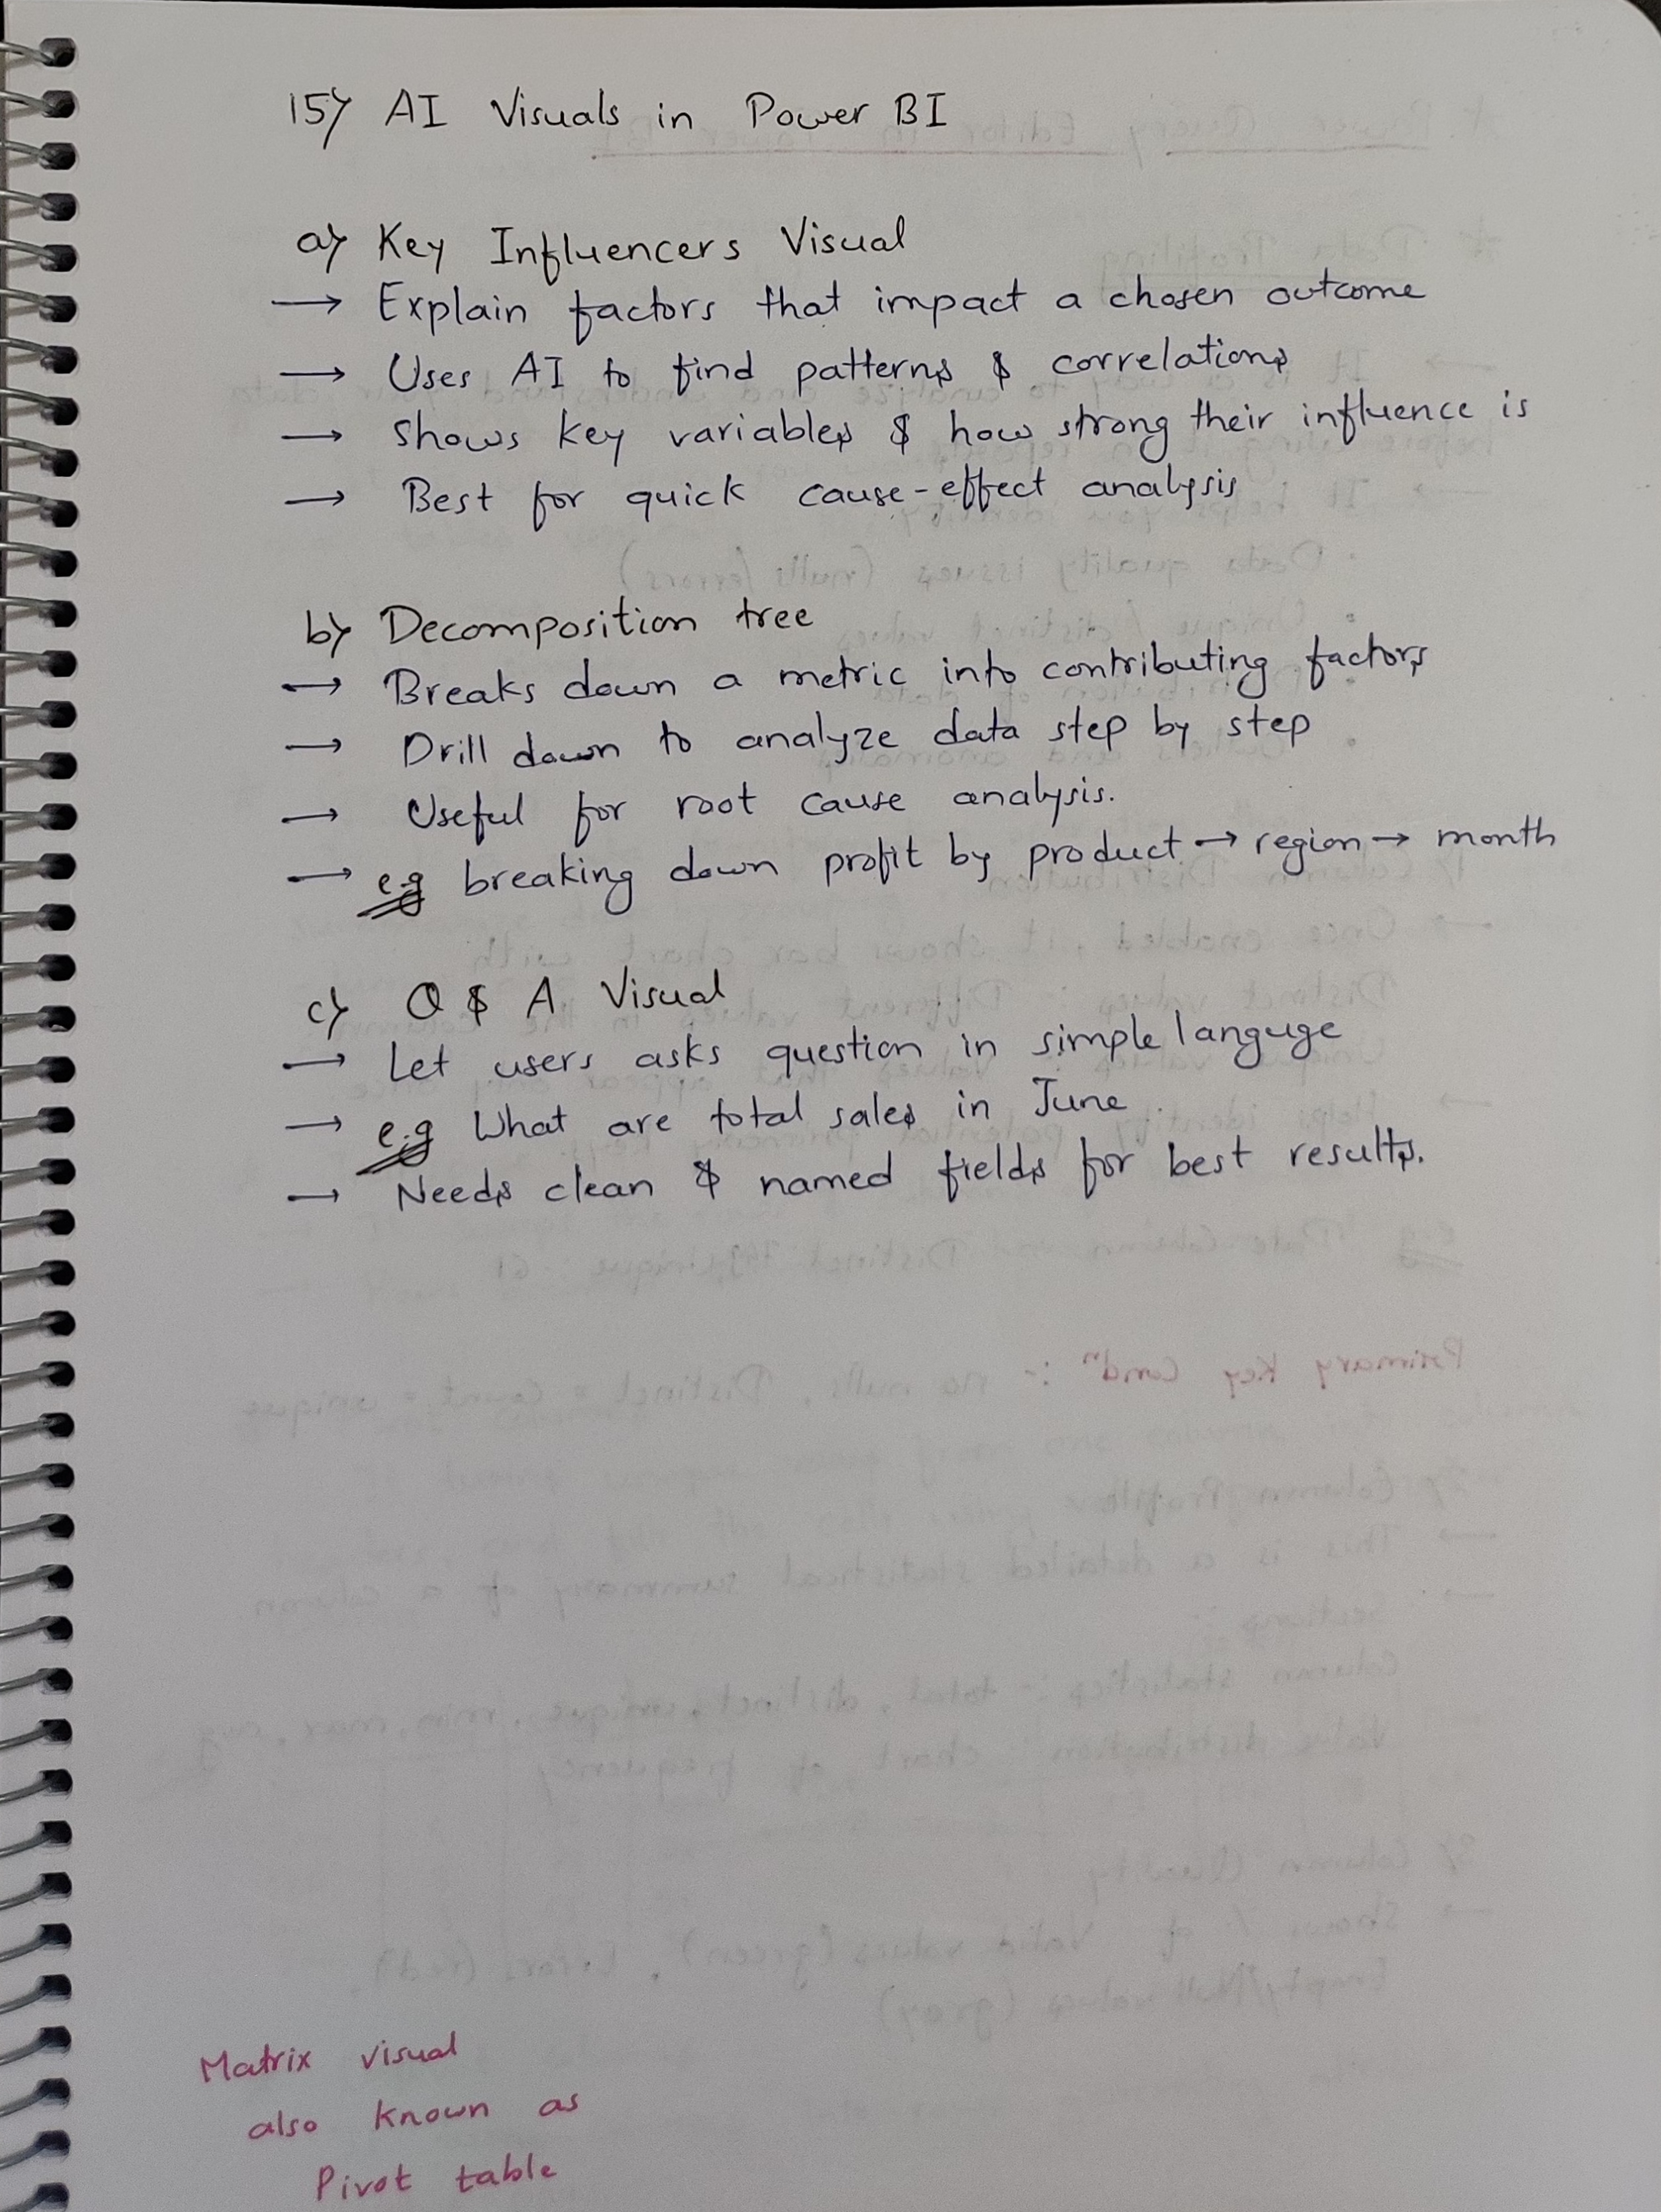 15) AI Visuals in Power BI
a) Key Influencers Visual
→ Explain factors that impact a chosen outcome
→ Uses AI to find patterns & correlations
→ Shows key variables & how strong their influence is
→ Best for quick cause-effect analysis
b) Decomposition tree
→ Breaks down a metric into contributing factors
→ Drill down to analyze data step by step
→ Useful for root cause analysis.
→ e.g breaking down profit by product → region → month
c) Q & A Visual
→ Let users asks question in simple languge
→ e.g What are total sales in June
→ Needs clean & named fields for best results.
Matrix visual
also known as
Pivot table